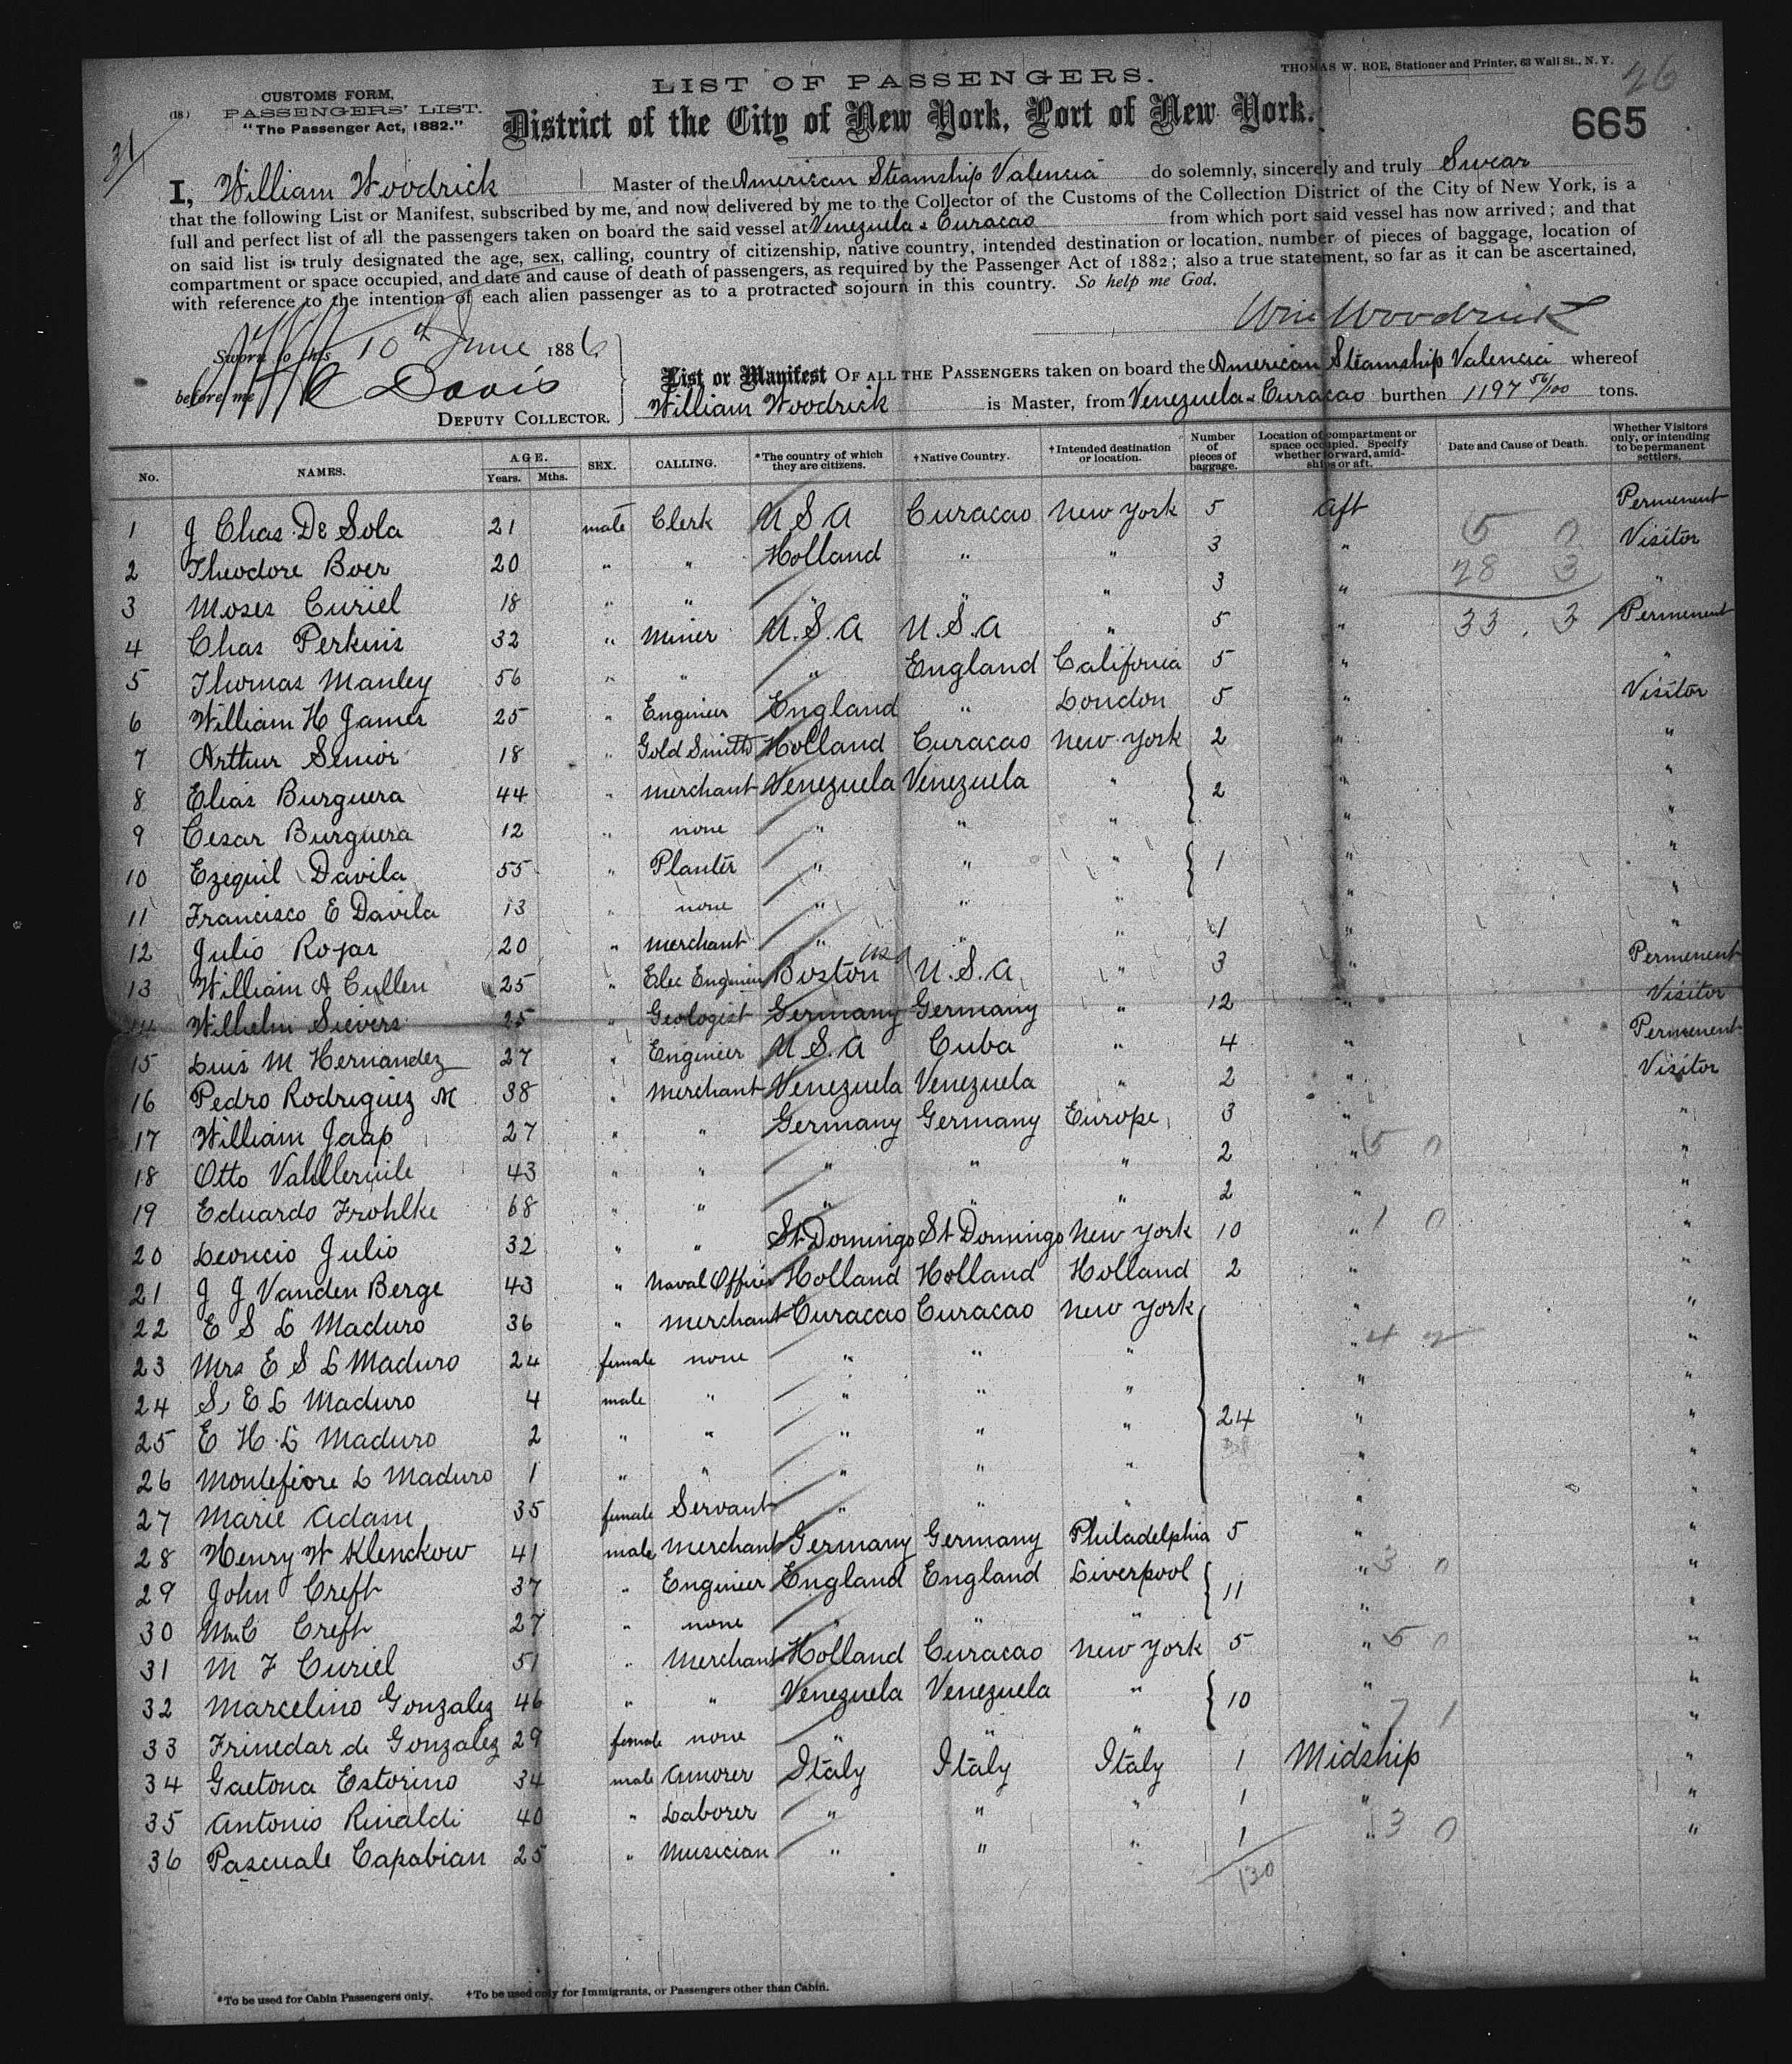 THOMAS W. ROE, Stationer and Printer, 63 Wall St., N. Y.
26
LIST OF PASSENGERS.
(18) CUSTOMS FORM.
PASSENGERS' LIST.
"The Passenger Act, 1882."
District of the City of New York, Port of New York.
665
31
I, William Woodrick Master of the American Steamship Valencia do solemnly, sincerely and truly Swear
that the following List or Manifest, subscribed by me, and now delivered by me to the Collector of the Customs of the Collection District of the City of New York, is a
full and perfect list of all the passengers taken on board the said vessel at Venezuela & Curacao from which port said vessel has now arrived; and that
on said list is truly designated the age, sex, calling, country of citizenship, native country, intended destination or location, number of pieces of baggage, location of
compartment or space occupied, and date and cause of death of passengers, as required by the Passenger Act of 1882; also a true statement, so far as it can be ascertained,
with reference to the intention of each alien passenger as to a protracted sojourn in this country. So help me God.
Wm Woodrick
Sworn to this 10th June 1886
before me Davis
DEPUTY COLLECTOR.
List or Manifest OF ALL THE PASSENGERS taken on board the American Steamship Valencia whereof
William Woodrick is Master, from Venezuela & Curacao burthen 1197 56/100 tons.
No. NAMES. AGE. Years. Mths. SEX. CALLING. *The country of which they are citizens. †Native Country. †Intended destination or location. Number of pieces of baggage. Location of compartment or space occupied. Specify whether forward, amidships or aft. Date and Cause of Death. Whether Visitors only, or intending to be permanent settlers.
1 J Chas De Sola 21 male Clerk U S A Curacao New York 5 Aft Permenent
2 Theodore Boer 20 " " Holland " " 3 " 5 0 Visitor
3 Moses Curiel 18 " " " " " 3 " 28 3 "
4 Chas Perkins 32 " Miner U.S.A U.S.A " 5 " 33 3 Permenent
5 Thomas Manley 56 " " " England California 5 " "
6 William H James 25 " Engineer England " London 5 " Visitor
7 Arthur Senior 18 " Gold Smith Holland Curacao New York 2 " "
8 Elias Burguera 44 " Merchant Venezuela Venezuela " 2 " "
9 Cesar Burguera 12 " none " " " " "
10 Ezequil Davila 55 " Planter " " " 1 " "
11 Francisco E Davila 13 " none " " " " "
12 Julio Rojas 20 " Merchant " " " 1 " "
13 William A Cullen 25 " Elec Engineer Boston usa U.S.A " 3 " Permenent
14 Wilhelm Sievers 25 " Geologist Germany Germany " 12 " Visitor
15 Luis M Hernandez 27 " Engineer U.S.A Cuba " 4 " Permenent
16 Pedro Rodriguez M 38 " Merchant Venezuela Venezuela " 2 " Visitor
17 William Jaap 27 " " Germany Germany Europe 3 " "
18 Otto 43 " " " " " 2 " 5 0 "
19 Eduardo Frohlke 68 " " " " " 2 " "
20 Leoncio Julio 32 " " St Domingo St Domingo New York 10 " 1 0 "
21 J J Vanden Berge 43 " Naval Officer Holland Holland Holland 2 " "
22 E S L Maduro 36 " Merchant Curacao Curacao New York " "
23 Mrs E S L Maduro 24 female none " " " " 4 2 "
24 S, E L Maduro 4 male " " " " " "
25 E H L Maduro 2 " " " " " 24 " "
26 Montefiore L Maduro 1 " " " " " " "
27 Marie Adam 35 female Servant " " " " "
28 Henry W Klenckow 41 male Merchant Germany Germany Philadelphia 5 " "
29 John Creft 37 " Engineer England England Liverpool 11 " 3 0 "
30 Creft 27 " none " " " " "
31 M F Curiel 51 " Merchant Holland Curacao New York 5 " 5 0 "
32 Marcelino Gonzalez 46 " " Venezuela Venezuela " 10 " "
33 Frinedar de Gonzalez 29 female none " " " " 7 1 "
34 Gaetona Estorino 34 male Italy Italy Italy 1 Midship "
35 Antonio Rinaldi 40 " Laborer " " " 1 " "
36 Pascuale Capabian 25 " Musician " " " 1 " 3 0 "
130
*To be used for Cabin Passengers only. †To be used only for Immigrants, or Passengers other than Cabin.